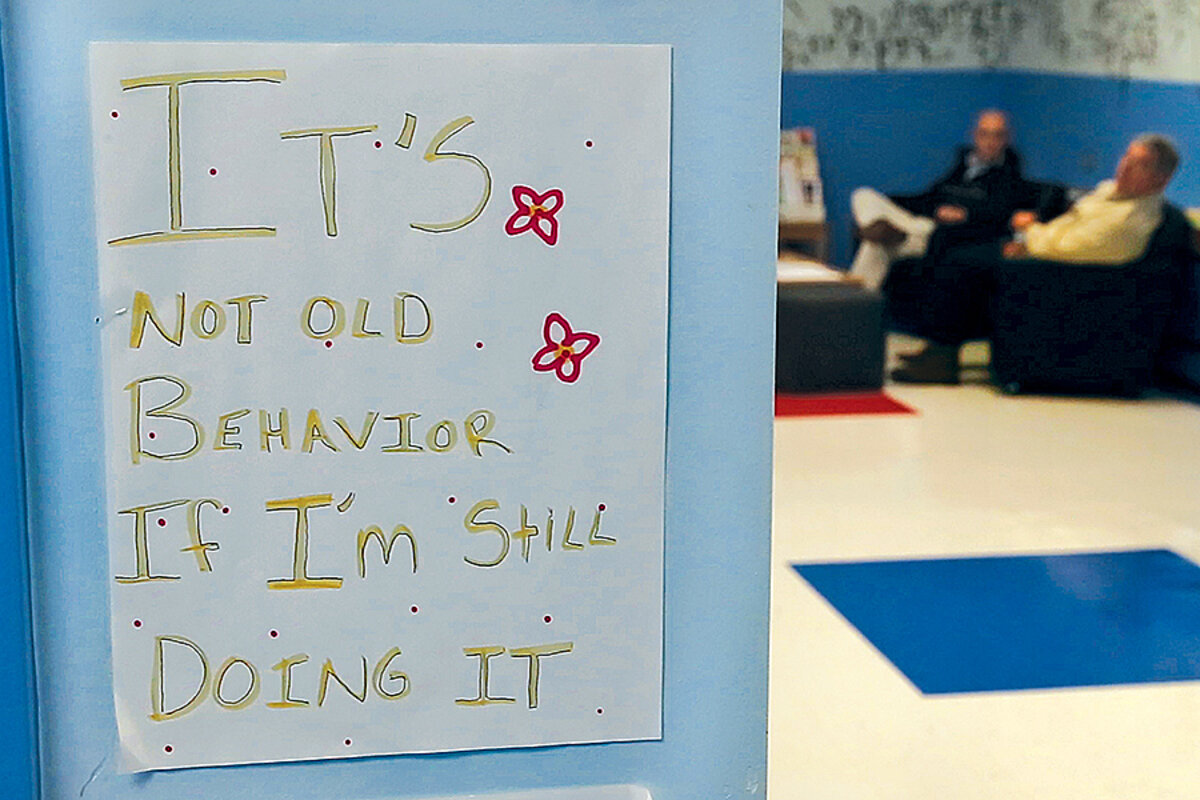 IT'S
NOT OLD
BEHAVIOR
If I'm Still
DOING IT